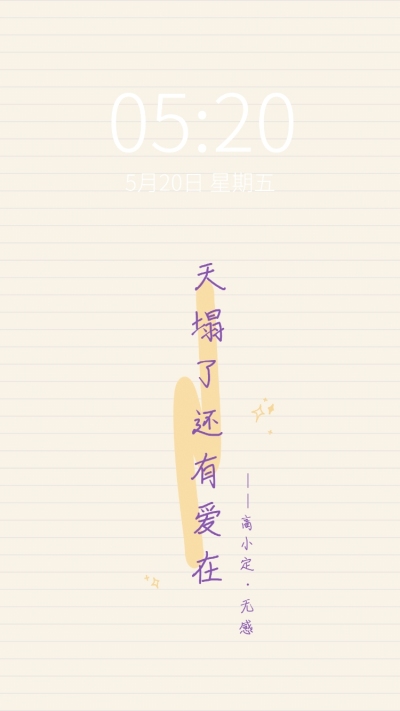 05:20
5月20日 星期五
天塌了还有爱在
——高小定·无感